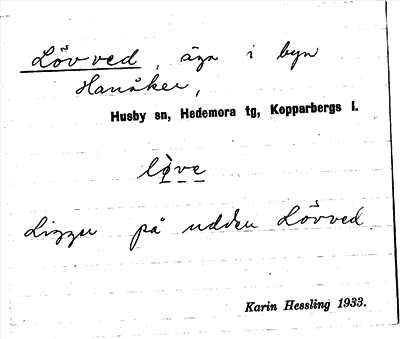 Lövved, äga i byn
Hanåker,
Husby sn, Hedemora tg, Kopparbergs l.
Ligger på udden Lövved.
Karin Hessling 1933.